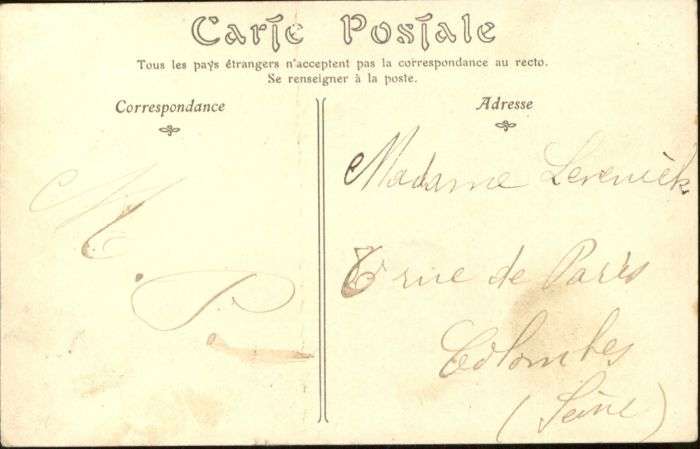 Carte Postale
Tous les pays étrangers n'acceptent pas la correspondance au recto.
Se renseigner à la poste.
Correspondance
Adresse
M. P.
Madame
rue de Paris
Colombes
(Seine)